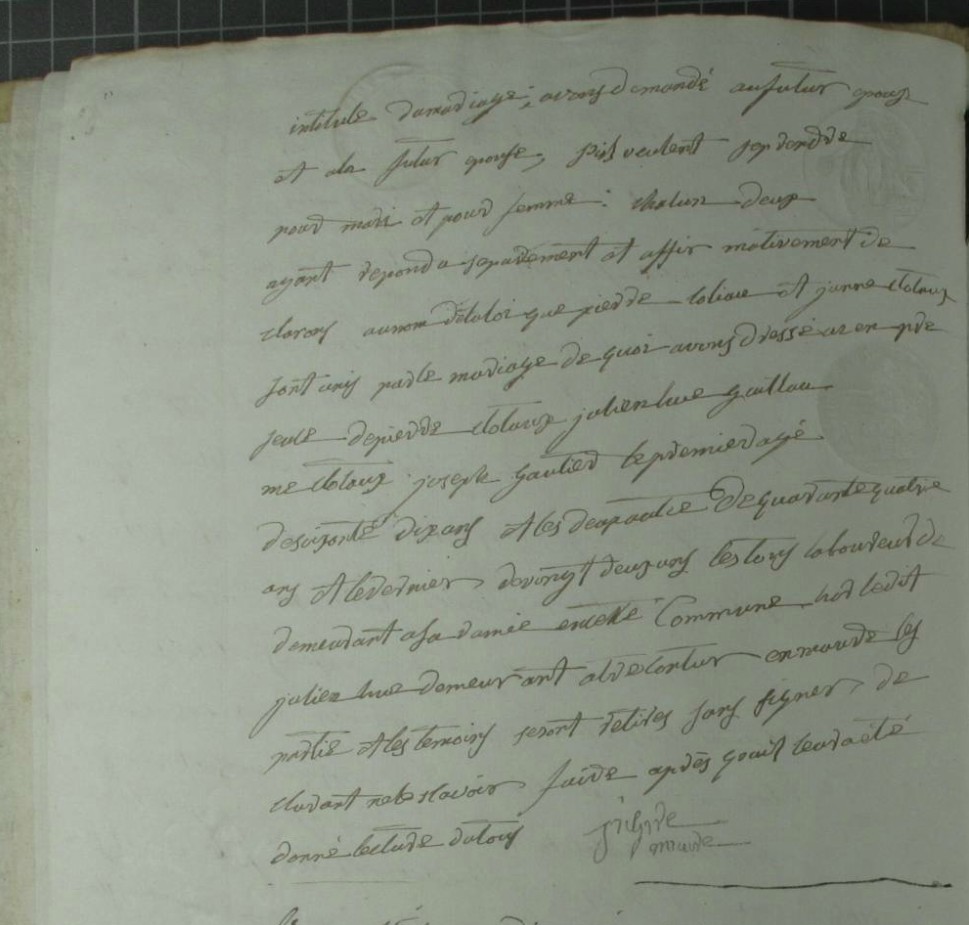 intitule damariage; avons demandé aufutur epoux
et ala futur epouse, sils veulent seprendre
pour mari et pour femme: chalun deux
ayant repondu separement et affir mativement de
clarons aunom delaloi que pierre et janne
sont unis parle mariage de quoi avons dressé acte en pre
sence depierre julien hue guillau
me joseph gautier lepremier agé
desoixante dix ans et les deux autre de quarante quatre
ans et ledernier devengt deux ans testous laboureur de
demeurant encette Commune hor ledit
julien hue demeurant enmande les
partie et les temoins seront retires sans signer de
clarant nele scavoir faire après quoil leura eté
donné lecture dutous
maire